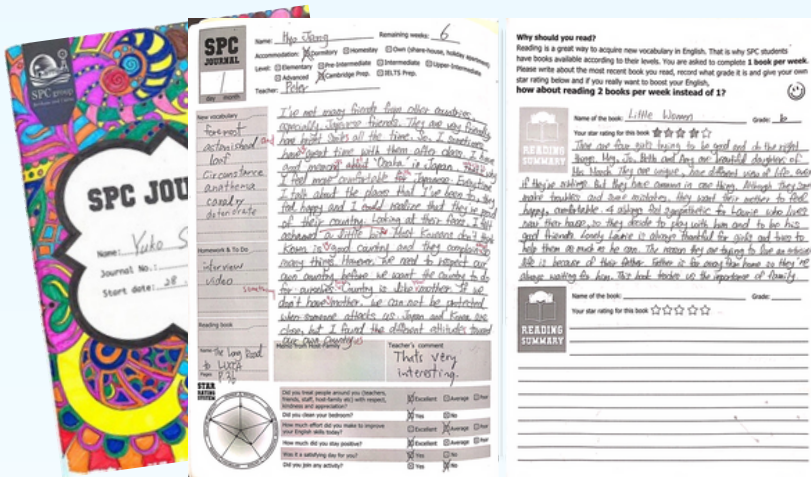 SPC group
SPC JOU
Name: Yuko S
Journal No.:
Start date: 28
SPC
JOURNAL
day month
Name: Hyo Jiang Remaining weeks: 6
Accommodation: Dormitory Homestay Own (share-house, holiday apartment)
Level: Elementary Pre-Intermediate Intermediate Upper-Intermediate
Advanced Cambridge Prep. IELTS Prep.
Teacher: Peter
New vocabulary
foremost
astonished
loaf
circumstance
anathema
cavalry
deteriorate
Homework & To Do
interview
video
Reading book
Name: The Long Road
to
Pages P.36
I've met many friends from other countries
especially Japanese friends. They are very friendly
and have bright smiles all the time. So, I sometimes
have great time with them after class. I have
good memories about "Osaka" in Japan. That's why
I feel more comfortable for Japanese. Everytime
I talk about the places that I've been to, they
feel happy and I could realize that they're proud
of their country. Looking at their faces, I felt
ashamed a little bit. Most Koreans don't think
Korea is good country and they complained
many things. However, we need to respect our
own country before we want the country to do
something for ourselves. Country is like mother. If we
don't have mother, we can not be protected
when someone attacks us. Japan and Korea are
close, but I found the different attitudes toward
our own country.
Memo from Host Family
Teacher's comment
That's very
interesting.
STAR
RATING
SYSTEM
Did you treat people around you (teachers,
friends, staff, host-family etc) with respect,
kindness and appreciation?
Excellent Average Poor
Did you clean your bedroom? Yes No
How much effort did you make to improve
your English skills today?
Excellent Average Poor
How much did you stay positive? Excellent Average Poor
Was it a satisfying day for you? Yes No
Did you join any activity? Yes No
Why should you read?
Reading is a great way to acquire new vocabulary in English. That is why SPC students
have books available according to their levels. You are asked to complete 1 book per week.
Please write about the most recent book you read, record what grade it is and give your own
star rating below and if you really want to boost your English,
how about reading 2 books per week instead of 1?
READING
SUMMARY
Name of the book: Little Women Grade: 6
Your star rating for this book
There are four girls trying to be good and do the right
things. Meg, Jo, Beth and Amy are beautiful daughters of
the March. They are unique, have different view of life, even
if they're siblings. But they have common in one thing. Although they sometimes
make troubles and some mistakes, they want their mother to feel
happy, comfortable. 4 siblings feel sympathetic for Laurie who lives
near their house, so they decide to play with him and to be his
good friends. Lovely Laurie is always thankful for girls and tries to
help them as much as he can. The reason they are trying to live an
life is because of their father. Father is far away from home so they're
always waiting for him. This book teaches us the importance of family.
READING
SUMMARY
Name of the book: Grade:
Your star rating for this book